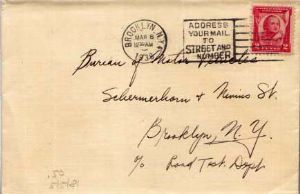 BROOKLYN, N.Y.
MAR 6
ADDRESS
YOUR MAIL
TO
STREET AND
NUMBER
2
Bureau of Motor Vehicles
Schermerhorn & Nevins St.
Brooklyn, N.Y.
c/o Road Test Dept